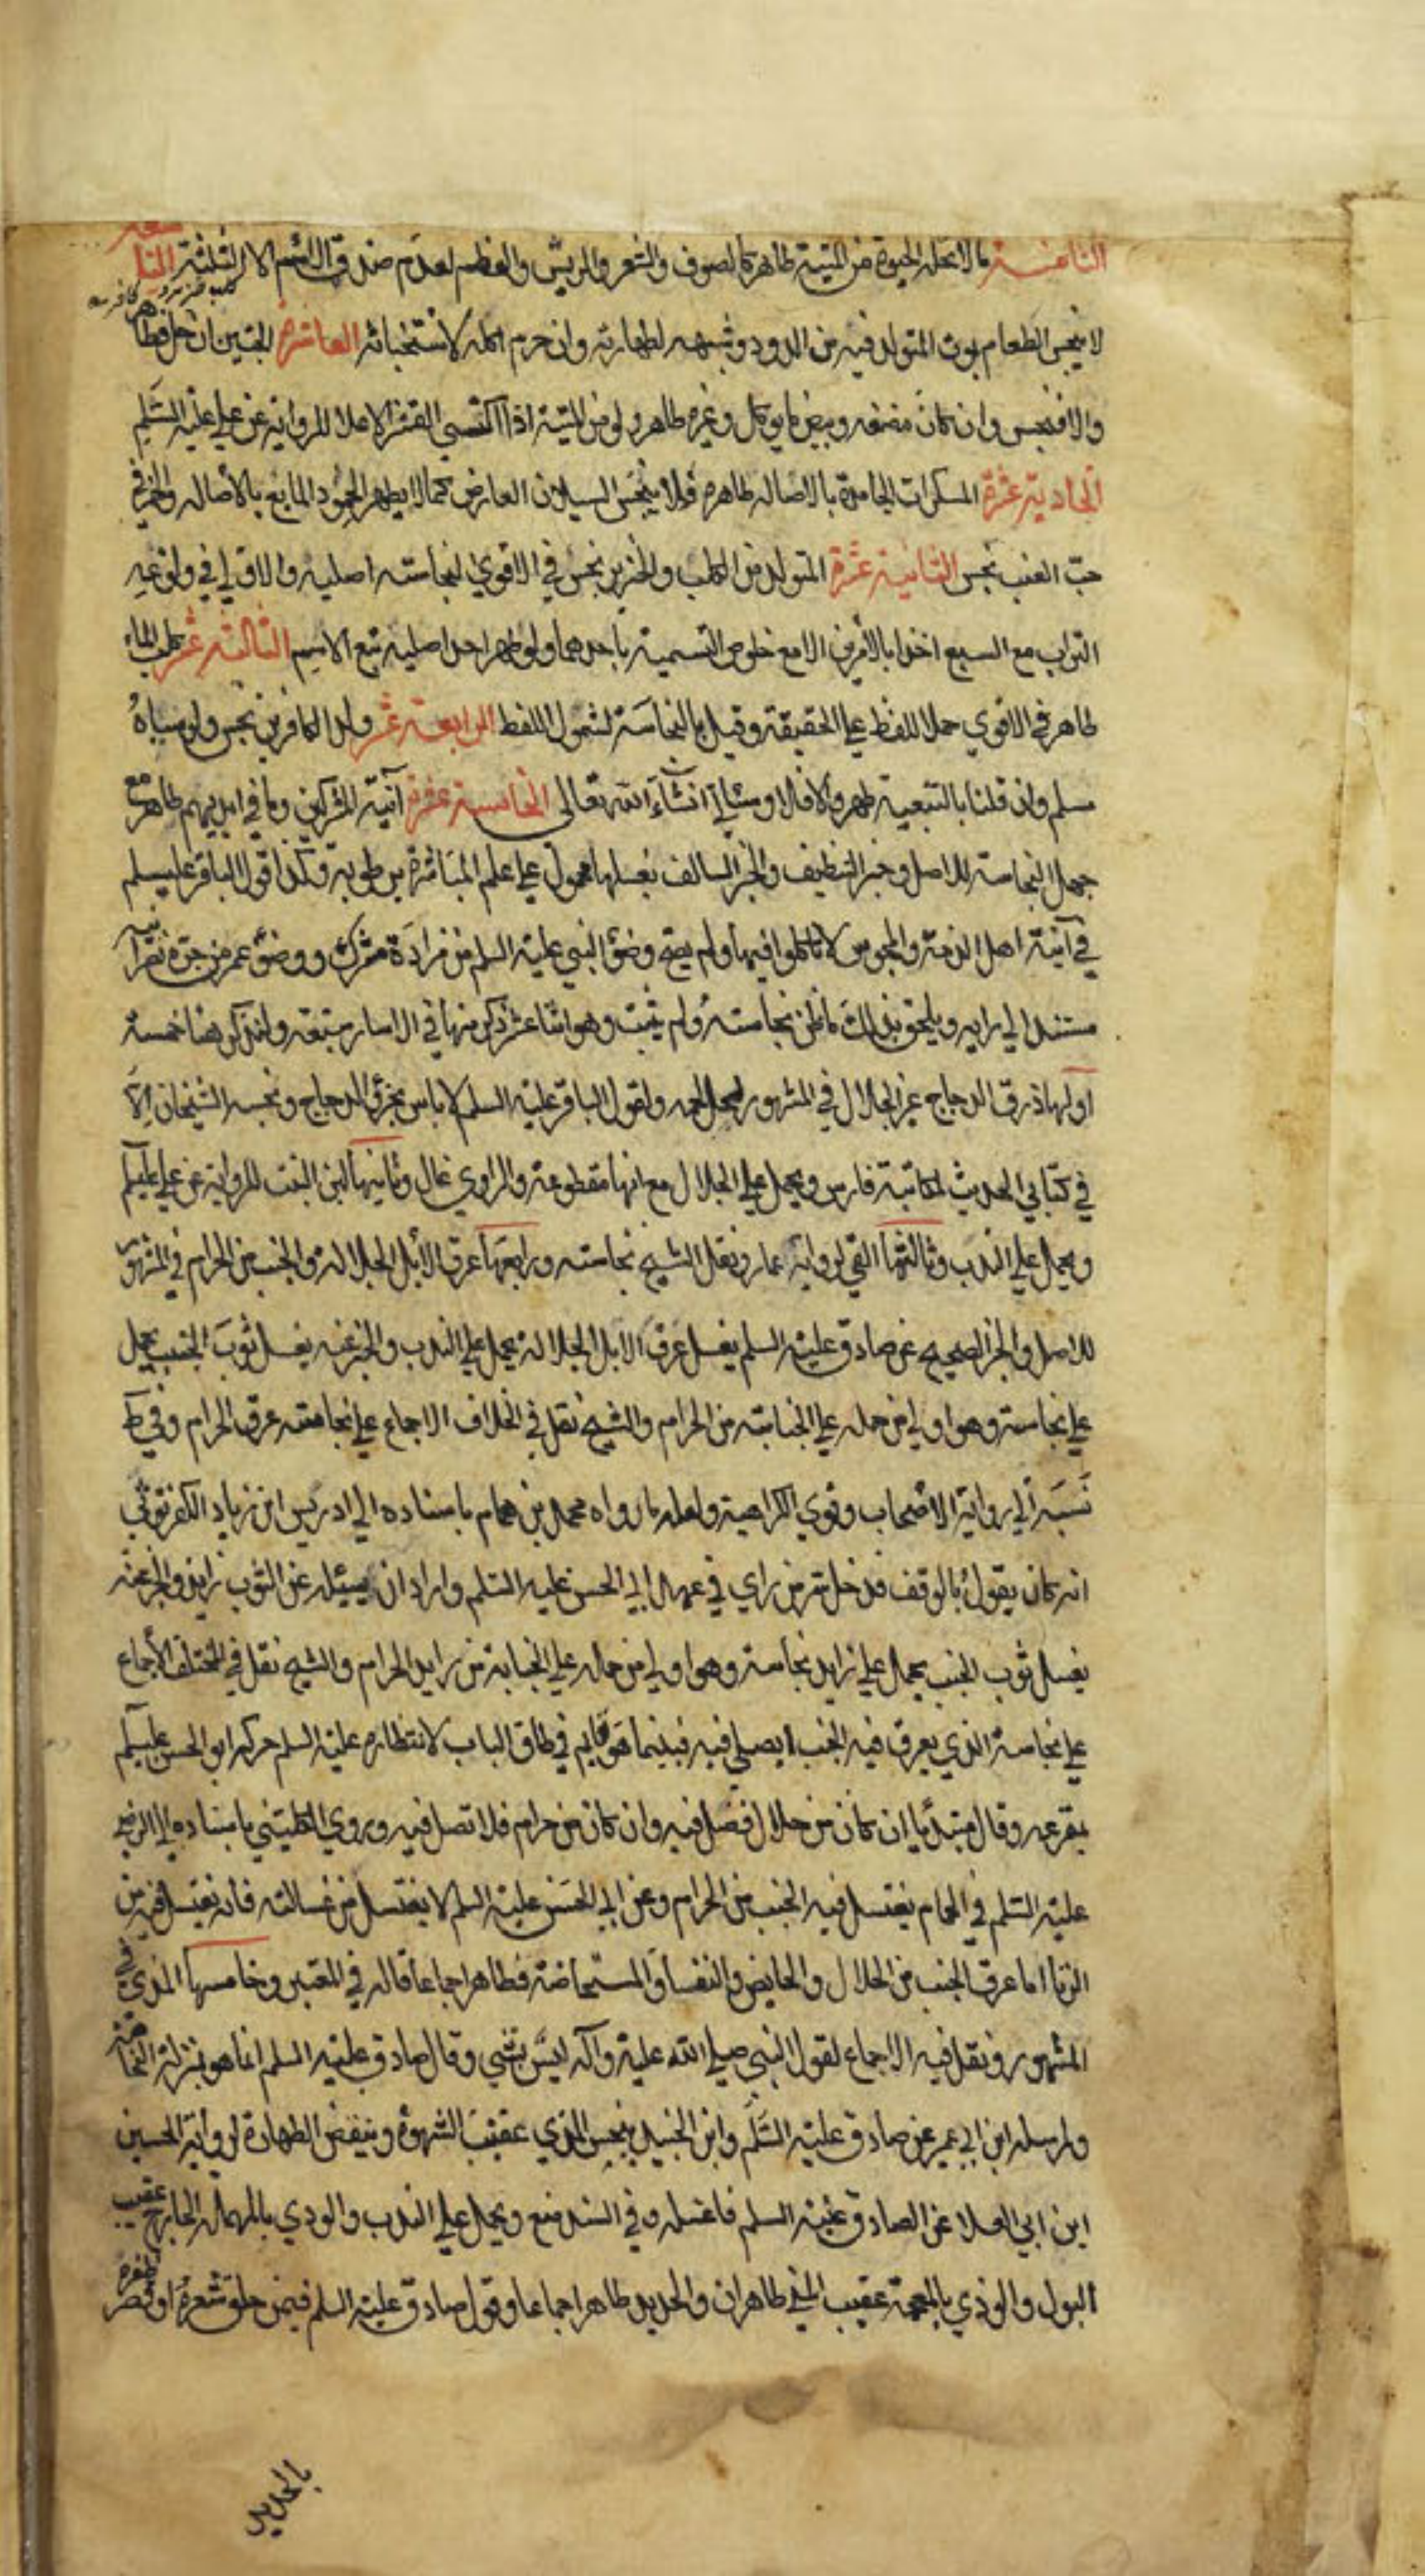 الثامنة ما لا تحله الحيوة من الميتة طاهر كالصوف والشعر والريش والعظم لعدم صدق الاسم الا من الثلثة التاسعة
كلب خنزير كافر
لا ينجس الطعام بموت المتولد فيه من الدود وشبهه لطهارته وان حرم اكله لاستخباثه العاشرة الجنين ان حل فطاهر
والا فنجس وان كان مضغه وبيض ما يوكل وغيره طاهر ولو من الميتة اذا اكتسي القشر الاعلا للرواية عن علي عليه السلم
الحادية عشرة المسكرات الجامدة بالاصاله طاهره فلا ينجس السيلان العارض كما لا يطهر الجمود المايع بالاصاله والخمر في
حب العنب نجس الثانية عشرة المتولد من الكلب والخنزير نجس في الاقوي لنجاسته اصليه والاقرب في ولوغه
التراب مع السبع اخذا بالامرين الا مع خلوص التسمية باحدهما ولو طهر احد اصليه تبع الاسم الثالثة عشر كلب الماء
طاهر في الاقوي حملا للفظ علي الحقيقة وقيل بالنجاسة لشمول اللفظ الرابعة عشر ولد الكافرين نجس ولو سباه
مسلم وان قلنا بالتبعية طهر والا فلا وسيأتي انشاء الله تعالى الخامسة عشرة آنية المشركين وما في ايديهم طاهر مع
جهل النجاسة للاصل وخبر التنظيف والخبر السالف بغسلها محمول علي علم المباشرة برطوبة وكذا قول الباقر عليه السلم
في آنية اهل الذمة والمجوس لا تاكلوا فيها ولم يصح وضؤ النبي عليه السلم من مزادة مشرك ووضؤ عمر من جرة نصرانية
مستند الي رايه ويلحق بذلك ما ظن نجاسته ولم يثبت وهو اثنا عشر ذكر منها في الاسار سبعه ولنذكر هنا خمسة
اولها ذرق الدجاج غير الجلال في المشهور لحل لحمه ولقول الباقر عليه السلم لا باس بخرؤ الدجاج ونجسه الشيخان الا
في كتابي الحديث لمكاتبة فارس ويحمل علي الجلال مع انها مقطوعة والراوي غال وثانيها لبن البنت للرواية عن علي عليه السلم
ويحمل علي الندب وثالثها القي لرواية عمار ونقل الشيخ نجاسته ورابعها عرق الابل الجلالة والجنب من الحرام في المشهور
للاصل والخبر الصحيح عن صادق عليه السلم يغسل عرق الابل الجلالة يحمل علي الندب والخبر عنه يغسل ثوب الجنب يحمل
علي نجاسة وهو اولي من حمله علي الجنابة من الحرام والشيخ نقل في الخلاف الاجماع علي نجاسة عرق الحرام وفي ط
نسبه الي رواية الاصحاب وقوي الكراهية ولعله ما رواه محمد بن همام باسناده الي ادريس ابن زياد الكفرتوثي
انه كان يقول بالوقف فدخل سر من راي في عهد ابي الحسن عليه السلم واراد ان يسئله عن الثوب زايد والخبر عنه
يغسل ثوب الجنب يحمل علي زايد نجاسة وهو اولي من حمله علي الجنابة من زايد الحرام والشيخ نقل في المختلف الاجماع
علي نجاسة الذي يعرق فيه الجنب ايصلي فيه فبينما هو قايم في طاق الباب لانتظاره عليه السلم حركه ابو الحسن عليه السلم
بمقرعه وقال مبتدئا ان كان من حلال فصل فيه وان كان من حرام فلا تصل فيه وروي الكليني باسناده الي الرضا
عليه السلم في الحمام يغتسل فيه الجنب من الحرام وعن ابي الحسن عليه السلم لا يغتسل من غسالته فانه يغتسل فيه من
الزنا اما عرق الجنب من الحلال والحايض والنفسا والمستحاضة فطاهر اجماعا قاله في المعتبر وخامسها المذي في
المشهور ونقل فيه الاجماع لقول النبي صلي الله عليه وآله ليس بشي وقال صادق عليه السلم انما هو بمنزلة النخامة
ولمرسله ابن ابي عمير عن صادق عليه السلم وابن الجنيد ينجس المذي عقيب الشهوة وينقض الطهارة لرواية الحسين
ابن ابي العلا عن الصادق عليه السلم فاغسله وفي السند منع ويحمل علي الندب والودي بالمهملة الخارج عقيب
البول والوذي بالمعجمة عقيب المني طاهران والحديد طاهر اجماعا وقول صادق عليه السلم فيمن حلق شعره او قص ظفره
بالحديد